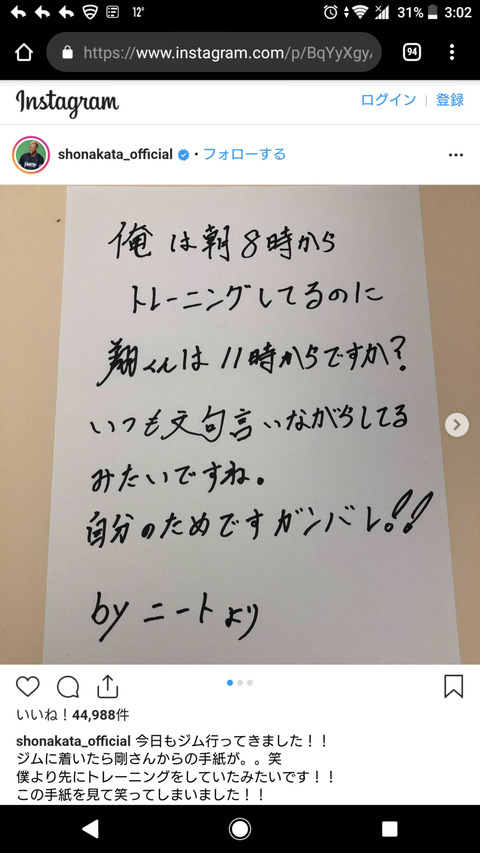 12°
31%
3:02
https://www.instagram.com/p/BqYyXgy
94
Instagram
ログイン | 登録
shonakata_official • フォローする
俺は朝8時から
トレーニングしてるのに
翔くんは11時からですか?
いつも文句言いながらしてる
みたいですね。
自分のためですガンバレ!!
by ニートより
いいね!44,988件
shonakata_official 今日もジム行ってきました!!
ジムに着いたら剛さんからの手紙が。。笑
僕より先にトレーニングをしていたみたいです!!
この手紙を見て笑ってしまいました!!